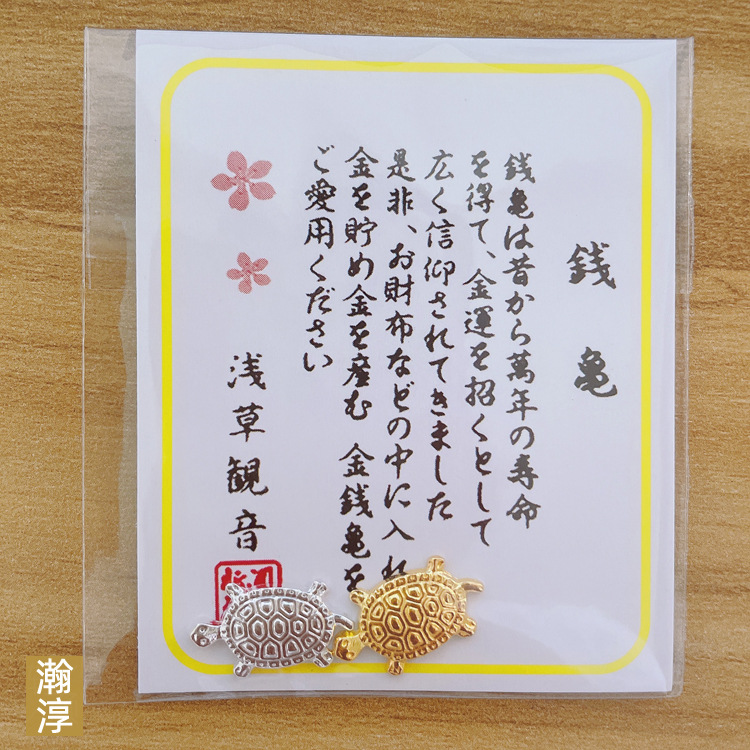 銭亀
銭亀は昔から萬年の寿命
を得て、金運を招くとして
広く信仰されてきました
是非、お財布などの中に入れ
金を貯め金を産む 金銭亀を
ご愛用ください
浅草観音
瀚淳